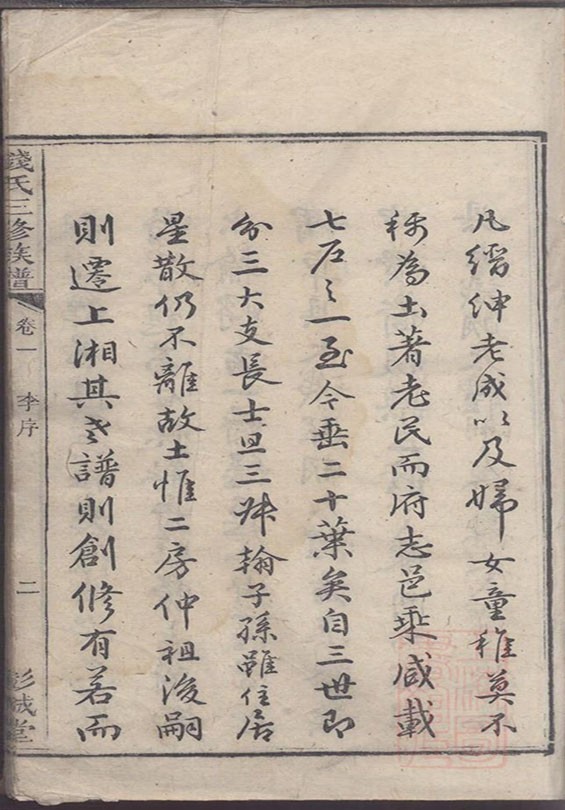 凡縉紳老成以及婦女童稚莫不
稱為土著老民而府志邑乘咸載
七石之一至今垂二十葉矣自三世即
分三大支長士旦三叔翰子孫雖住居
星散仍不離故土惟二房仲祖後嗣
則遷上湘其老譜則創修有若而
錢氏三修族譜
卷一
李序
二
彭城堂